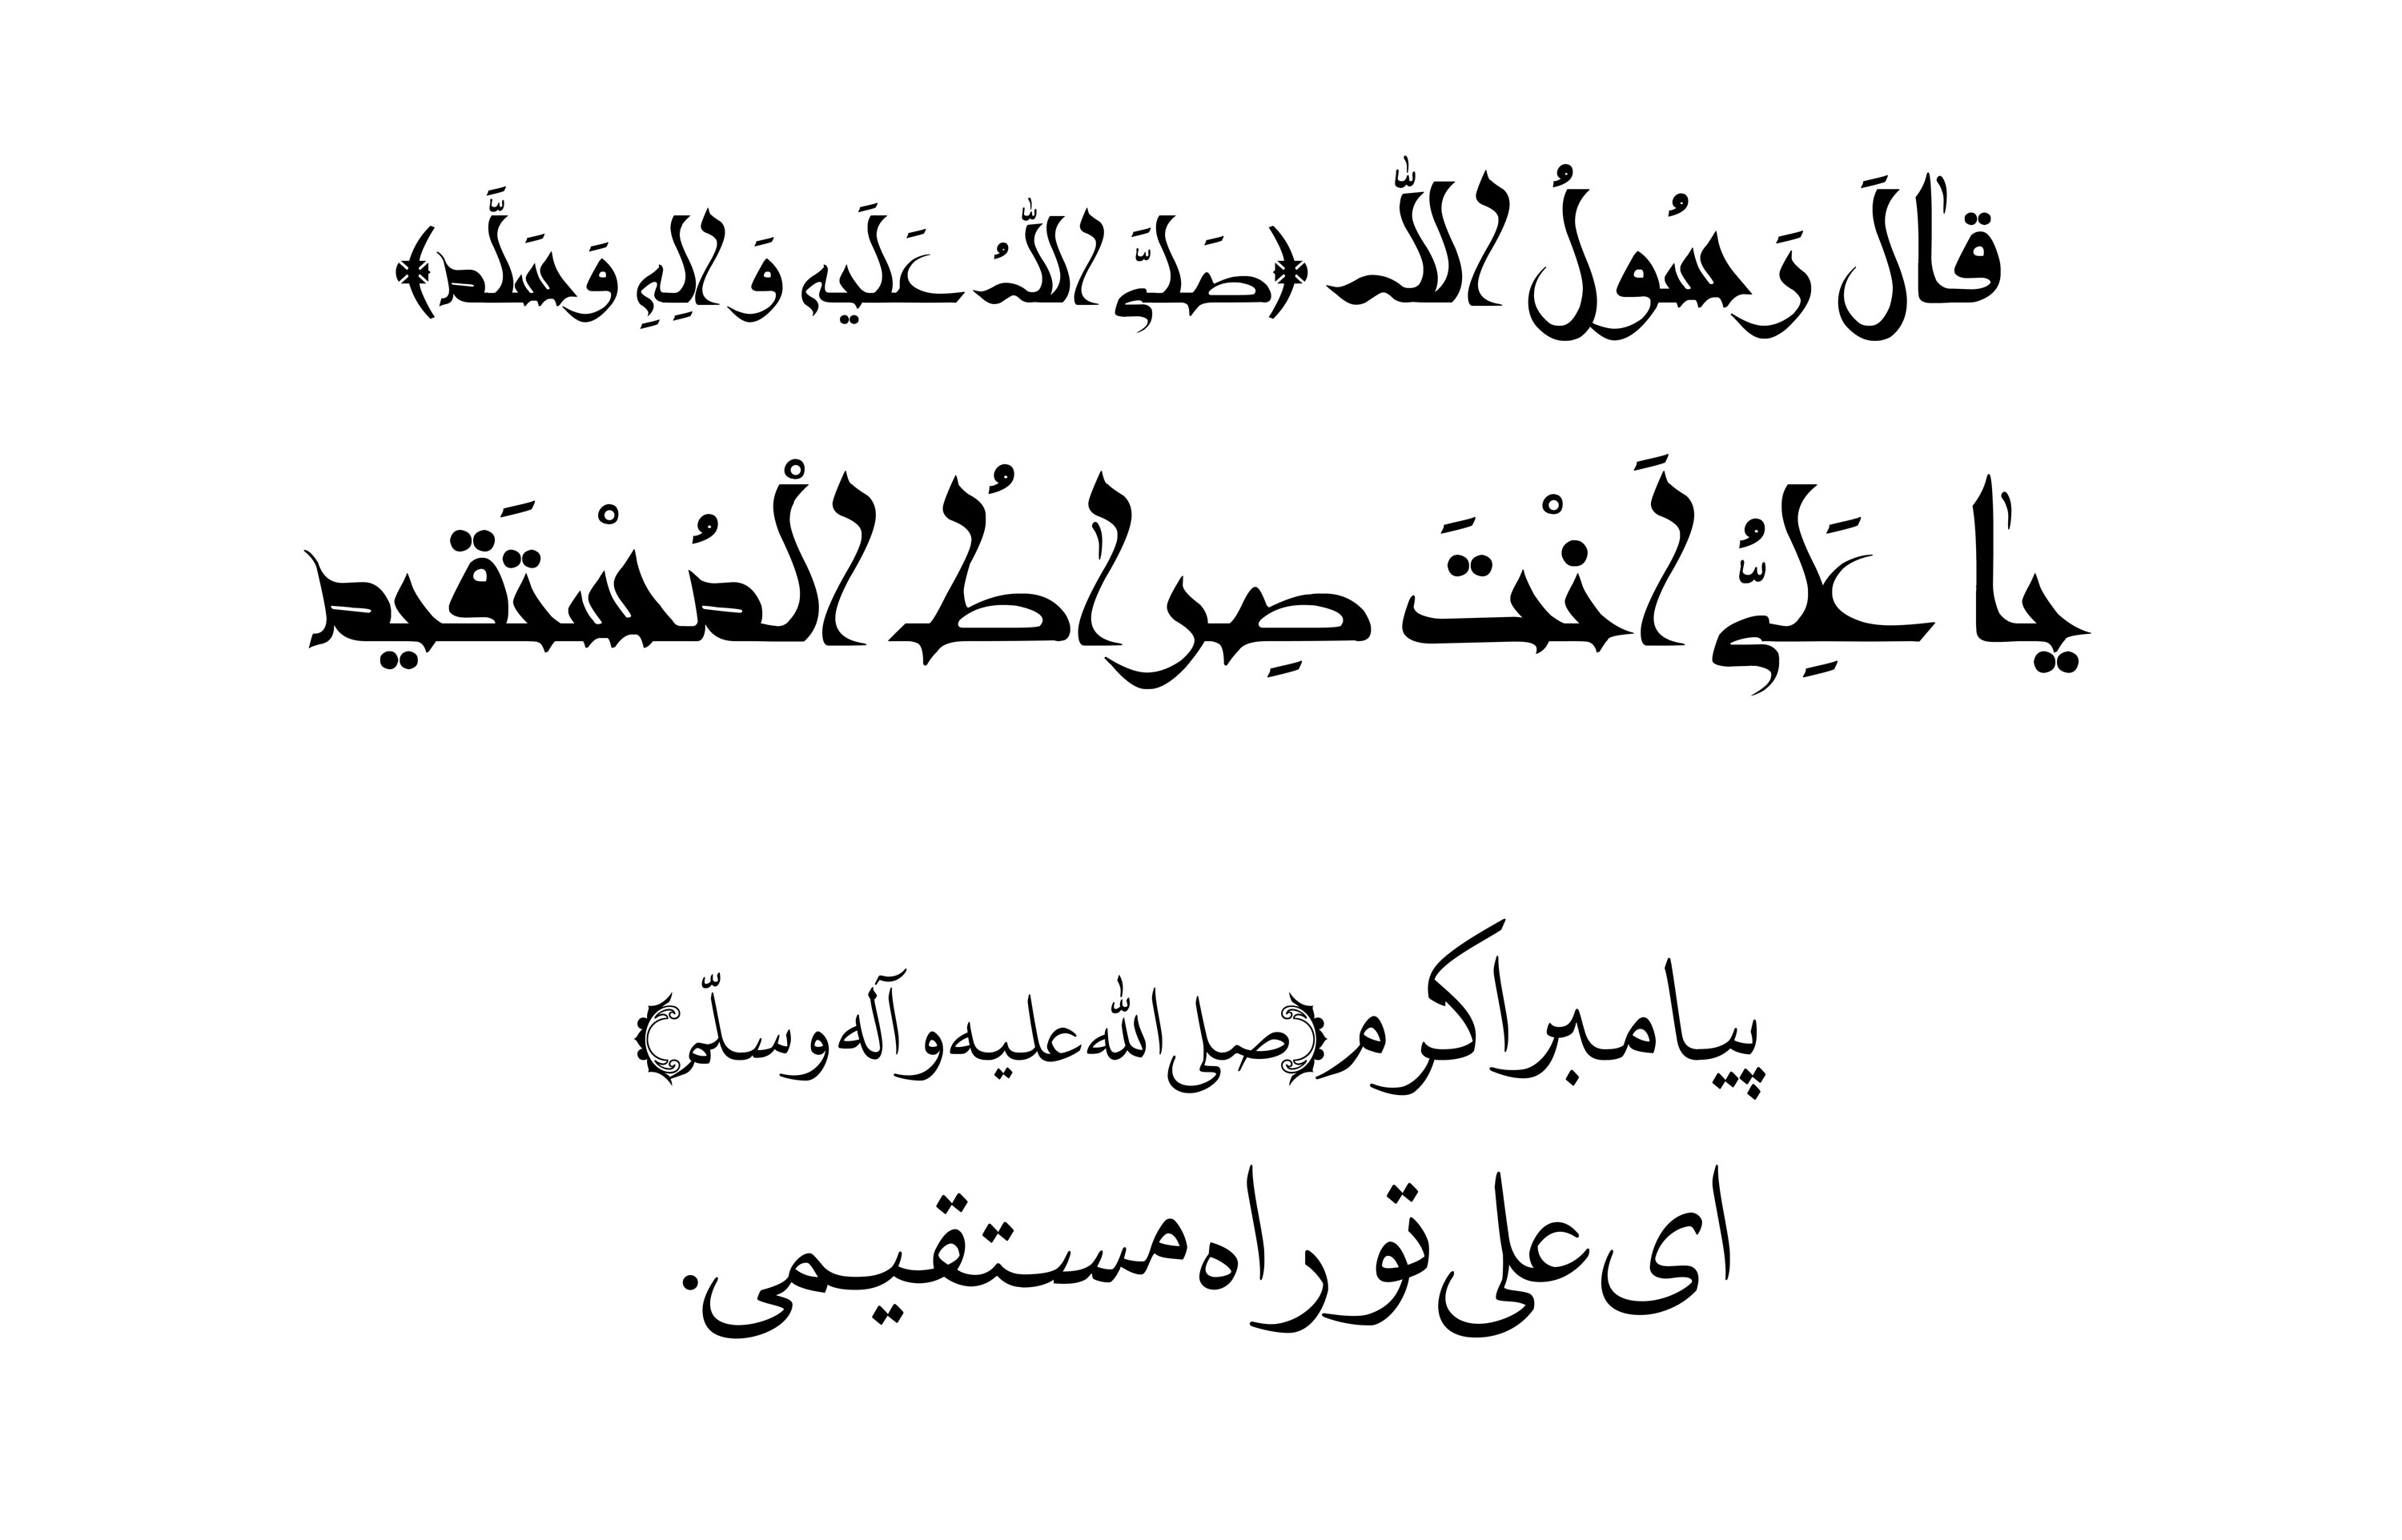 قالَ رَسُولُ اللّٰه (صَلَّیَ اللّٰهُ عَلَیهِ وَ الِهِ وَ سَلَّم)
یا عَلِیُّ اَنْتَ صِراطُ الْمُسْتَقیم
پیامبر اکرم (صلی اللّٰه علیه و آله و سلّم)
ای علی تو راه مستقیمی.